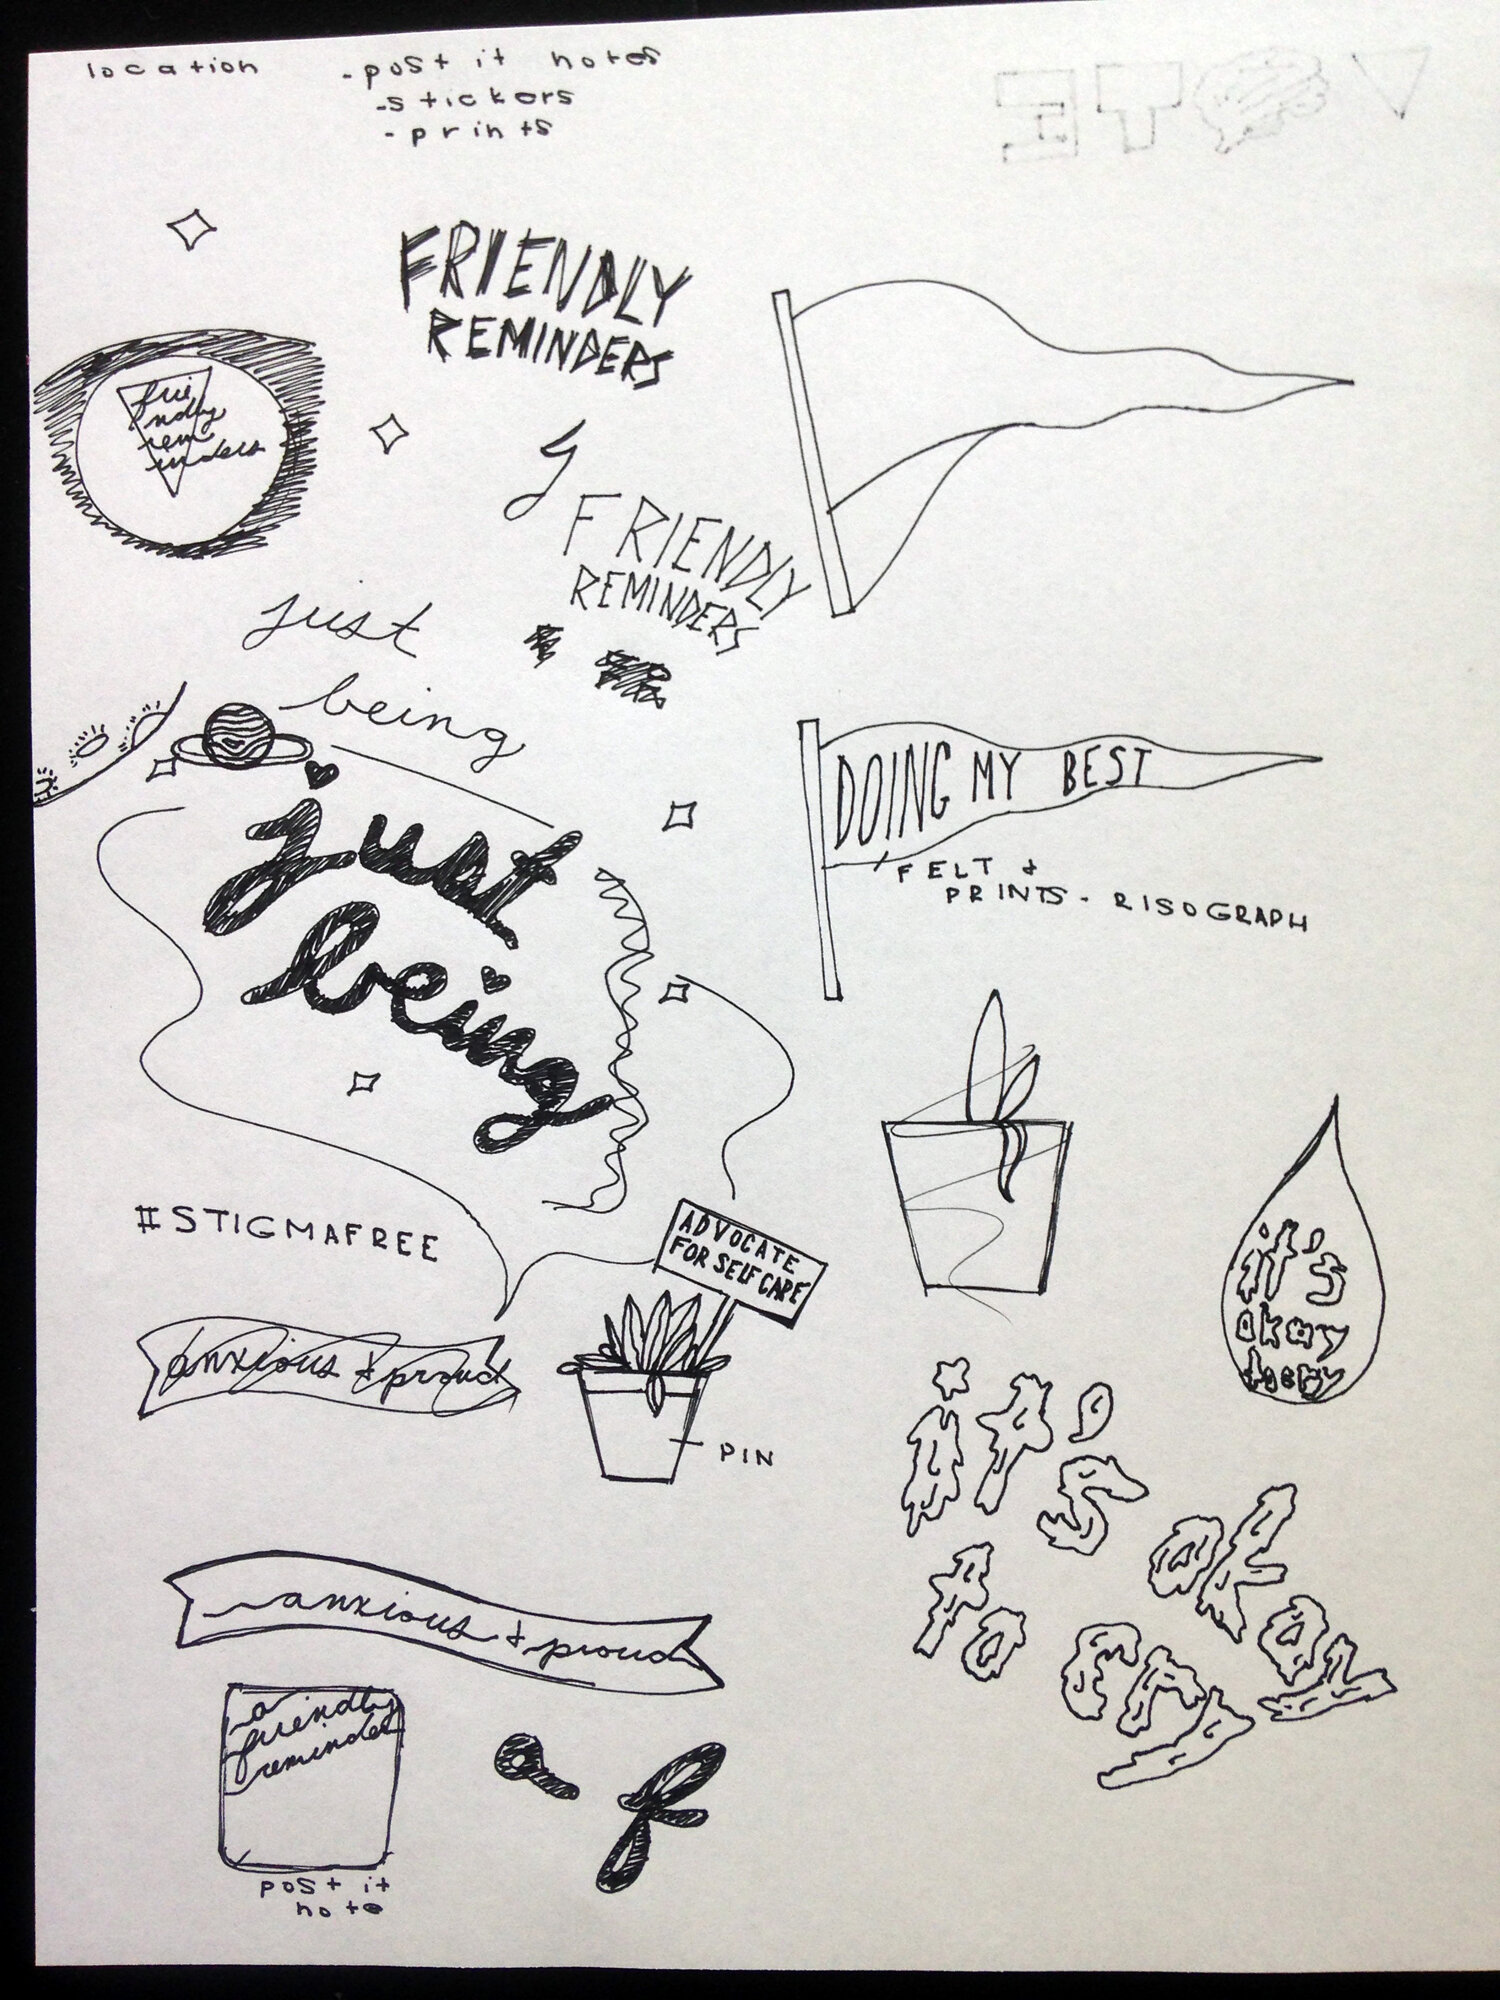 location
-post it notes
-stickers
-prints
VOTE
FRIENDLY
REMINDERS
frie
ndly
rem
inders
FRIENDLY
REMINDERS
just
being
just
being
DOING MY BEST
FELT +
PRINTS - RISOGRAPH
#STIGMAFREE
ADVOCATE
FOR SELF CARE
anxious + proud
PIN
it's
okay
to cry
it's
okay
to
cry
anxious + proud
a
friendly
reminder
post it
note